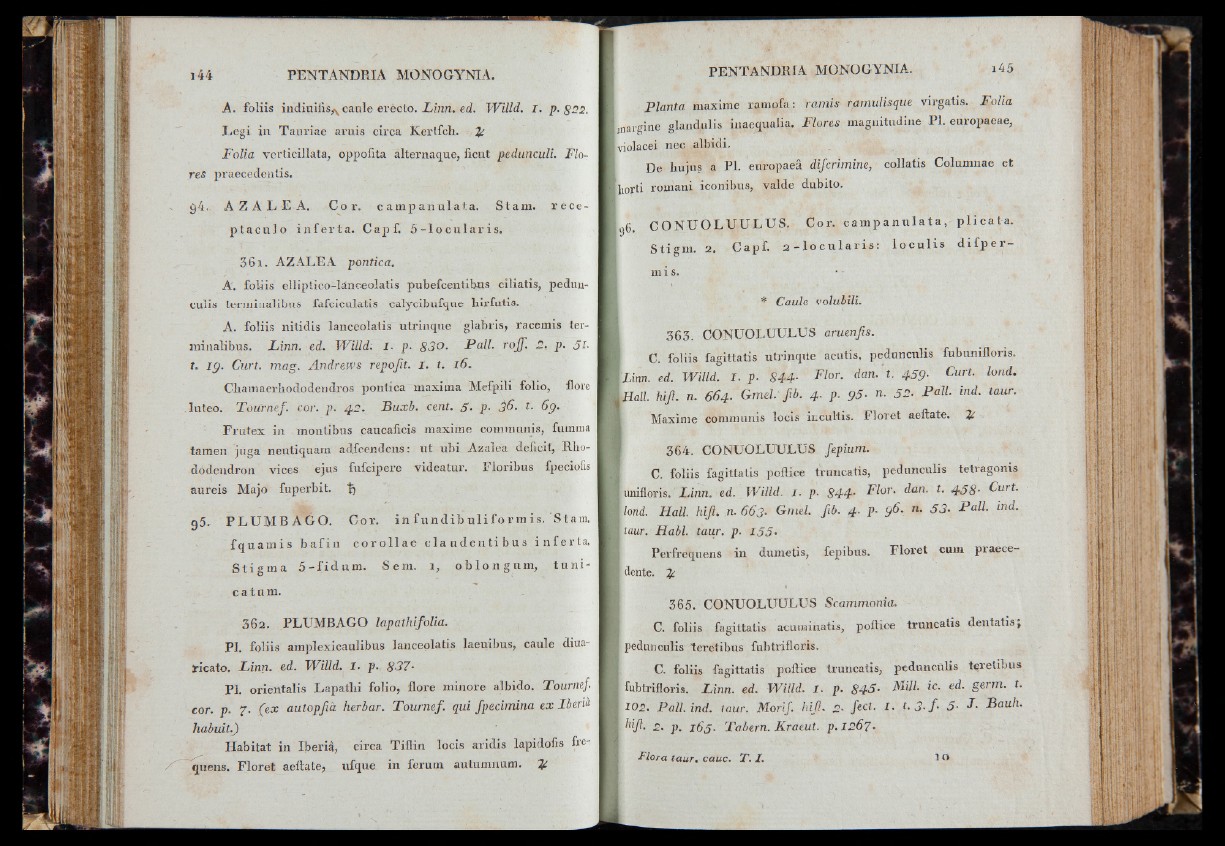 144 PENTANDRIA MONOGYNIA.
A. foliis indiuiſis, caule erecto. Linn. ed. Willd. 1. p. 822.
Legi in Tauriae aruis circa Kertſch. ♃
Folia verticillata, oppoſita alternaque, ſicut pedunculi. Flo-
res praecedentis.
94. AZALEA. Cor. campanulata. Stam. rece-
ptaculo inferta. Capſ. 5-locularis.
361. AZALEA pontica.
A. foliis elliptico-lanceolatis pubeſcentibus ciliatis, pedun-
culis terminalibus faſciculatis calycibuſque hirſutis.
A. foliis nitidis lanceolatis utrinque glabris, racemis ter-
minalibus. Linn. ed. Willd. 1. p. 830. Pall. roſſ. 2. p. 51.
t. 19. Curt. mag. Andrews repoſit. 1. t. 16.
Chamaerhododendros pontica maxima Meſpili folio, flore
luteo. Tournef. cor. p. 42. Buxb. cent. 5. p. 36. t. 69.
Frutex in montibus caucaſicis maxime communis, ſumma
tamen juga neutiquam adſcendens: ut ubi Azalea deficit, Rho-
dodendron vices ejus ſuſcipere videatur. Floribus ſpecioſis
aureis Majo ſuperbit. ♄
95. PLUMBAGO. Cor. infundibuliformis. Stam.
ſquamis baſin corollae claudentibus inferta.
Stigma 5-fidum. Sem. 1, oblongum, tuni-
catum.
362. PLUMBAGO lapathifolia.
Pl. foliis amplexicaulibus lanceolatis laeuibus, caule diua-
ricato. Linn. ed. Willd. 1. p. 837.
Pl. orientalis Lapathi folio, flore minore albido. Tournef.
cor. p. 7. (ex autopſiâ herbar. Tournef. qui ſpecimina ex Iberiâ
habuit.)
Habitat in Iberiâ, circa Tiflin locis aridis lapidoſis fre-
quens. Floret aeſtate, uſque in ferum autumnum. ♃
PENTANDRIA MONOGYNIA. 145
Planta maxime ramoſa: ramis ramulisque virgatis. Folia
margine glandulis inaequalia. Flores magnitudine Pl. europaeae,
violacei nec albidi.
De hujus a Pl. europaeâ diſcrimine, collatis Columnae et
horti romani iconibus, valde dubito.
96. CONUOLUULUS. Cor. campanulata, plicata.
Stigm. 2. Capſ. 2-locularis: loculis diſper-
mis.
* Caule volubili.
363. CONUOLUULUS aruenſis.
C. foliis ſagittatis utrinque acutis, pedunculis ſubunifloris.
Linn. ed. Willd. 1. p. 844. Flor. dan. t. 459. Curt. lond.
Hall. hiſt. n. 664. Gmel. ſib. 4. p. 95. n. 52. Pall. ind. taur.
Maxime communis locis incultis. Floret aeſtate. ♃
364. CONUOLUULUS ſepium.
C. foliis ſagittatis poſtice truncatis, pedunculis tetragonis
unifloris. Linn. ed. Willd. 1. p. 844. Flor. dan. t. 458. Curt.
lond. Hall. hiſt. n. 663. Gmel. ſib. 4. p. 96. n. 53. Pall. ind.
taur. Habl. taur. p. 155.
Perfrequens in dumetis, ſepibus. Floret cum praece-
dente. ♃
365. CONUOLUULUS Scammonia.
C. foliis ſagittatis acuminatis, poſtice truncatis dentatis;
pedunculis teretibus ſubtrifloris.
C. foliis ſagittatis poſtice truncatis, pedunculis teretibus
ſubtrifloris. Linn. ed. Willd. 1. p. 845. Mill. ic. ed. germ. t.
102. Pall. ind. taur. Moriſ. hiſt. 2. ſect. 1. t. 3. f. 5. J. Bauh.
hiſt. 2. p. 163. Tabern. Kraeut. p. 1267.
Flora taur. cauc. T. I. 10